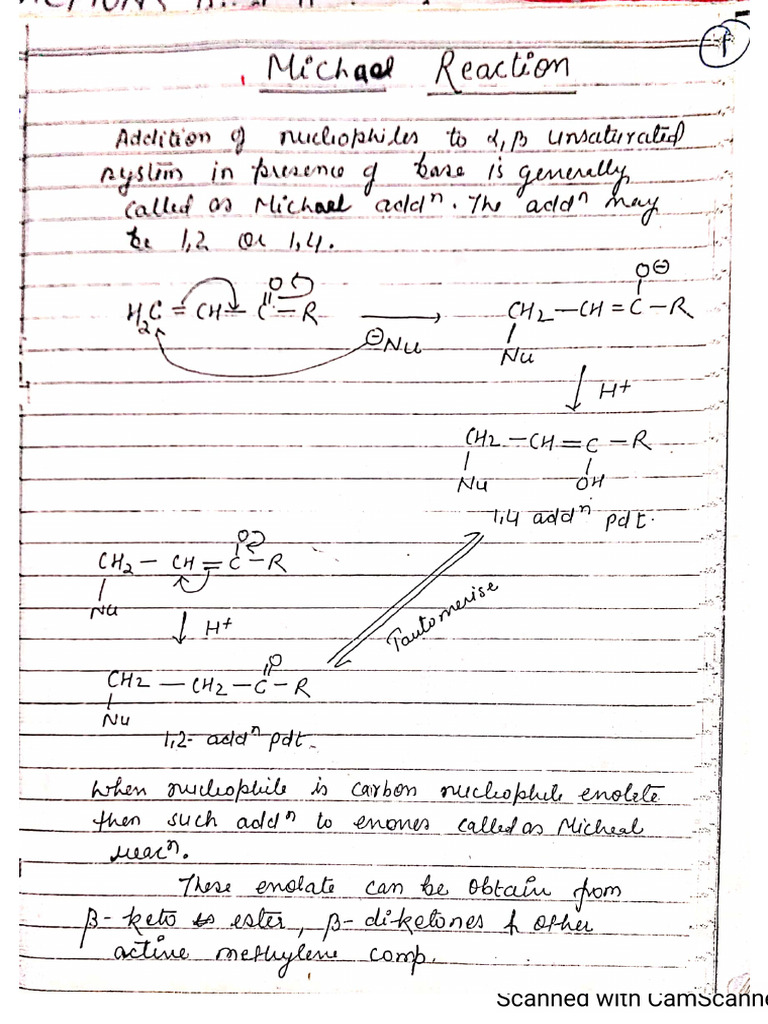 1
Michael Reaction
Addition of nucleophiles to α,β unsaturated
system in presence of base is generally
called as Michael addⁿ. The addⁿ may
be 1,2 or 1,4.
O⊖
O
H₂C = CH – C – R → CH₂ – CH = C – R
⊖Nu Nu
↓ H+
CH₂ – CH = C – R
Nu OH
1,4 addⁿ pdt.
O
CH₂ – CH = C – R
Nu
↓ H+
Tautomerise
O
CH₂ – CH₂ – C – R
Nu
1,2- addⁿ pdt.
When nucleophile is carbon nucleophile enolete
then such addⁿ to enones called as Micheal
reacⁿ.
These enolate can be obtain from
β-keto ester, β-diketones & other
active methylene comp.
Scanned with CamScanne